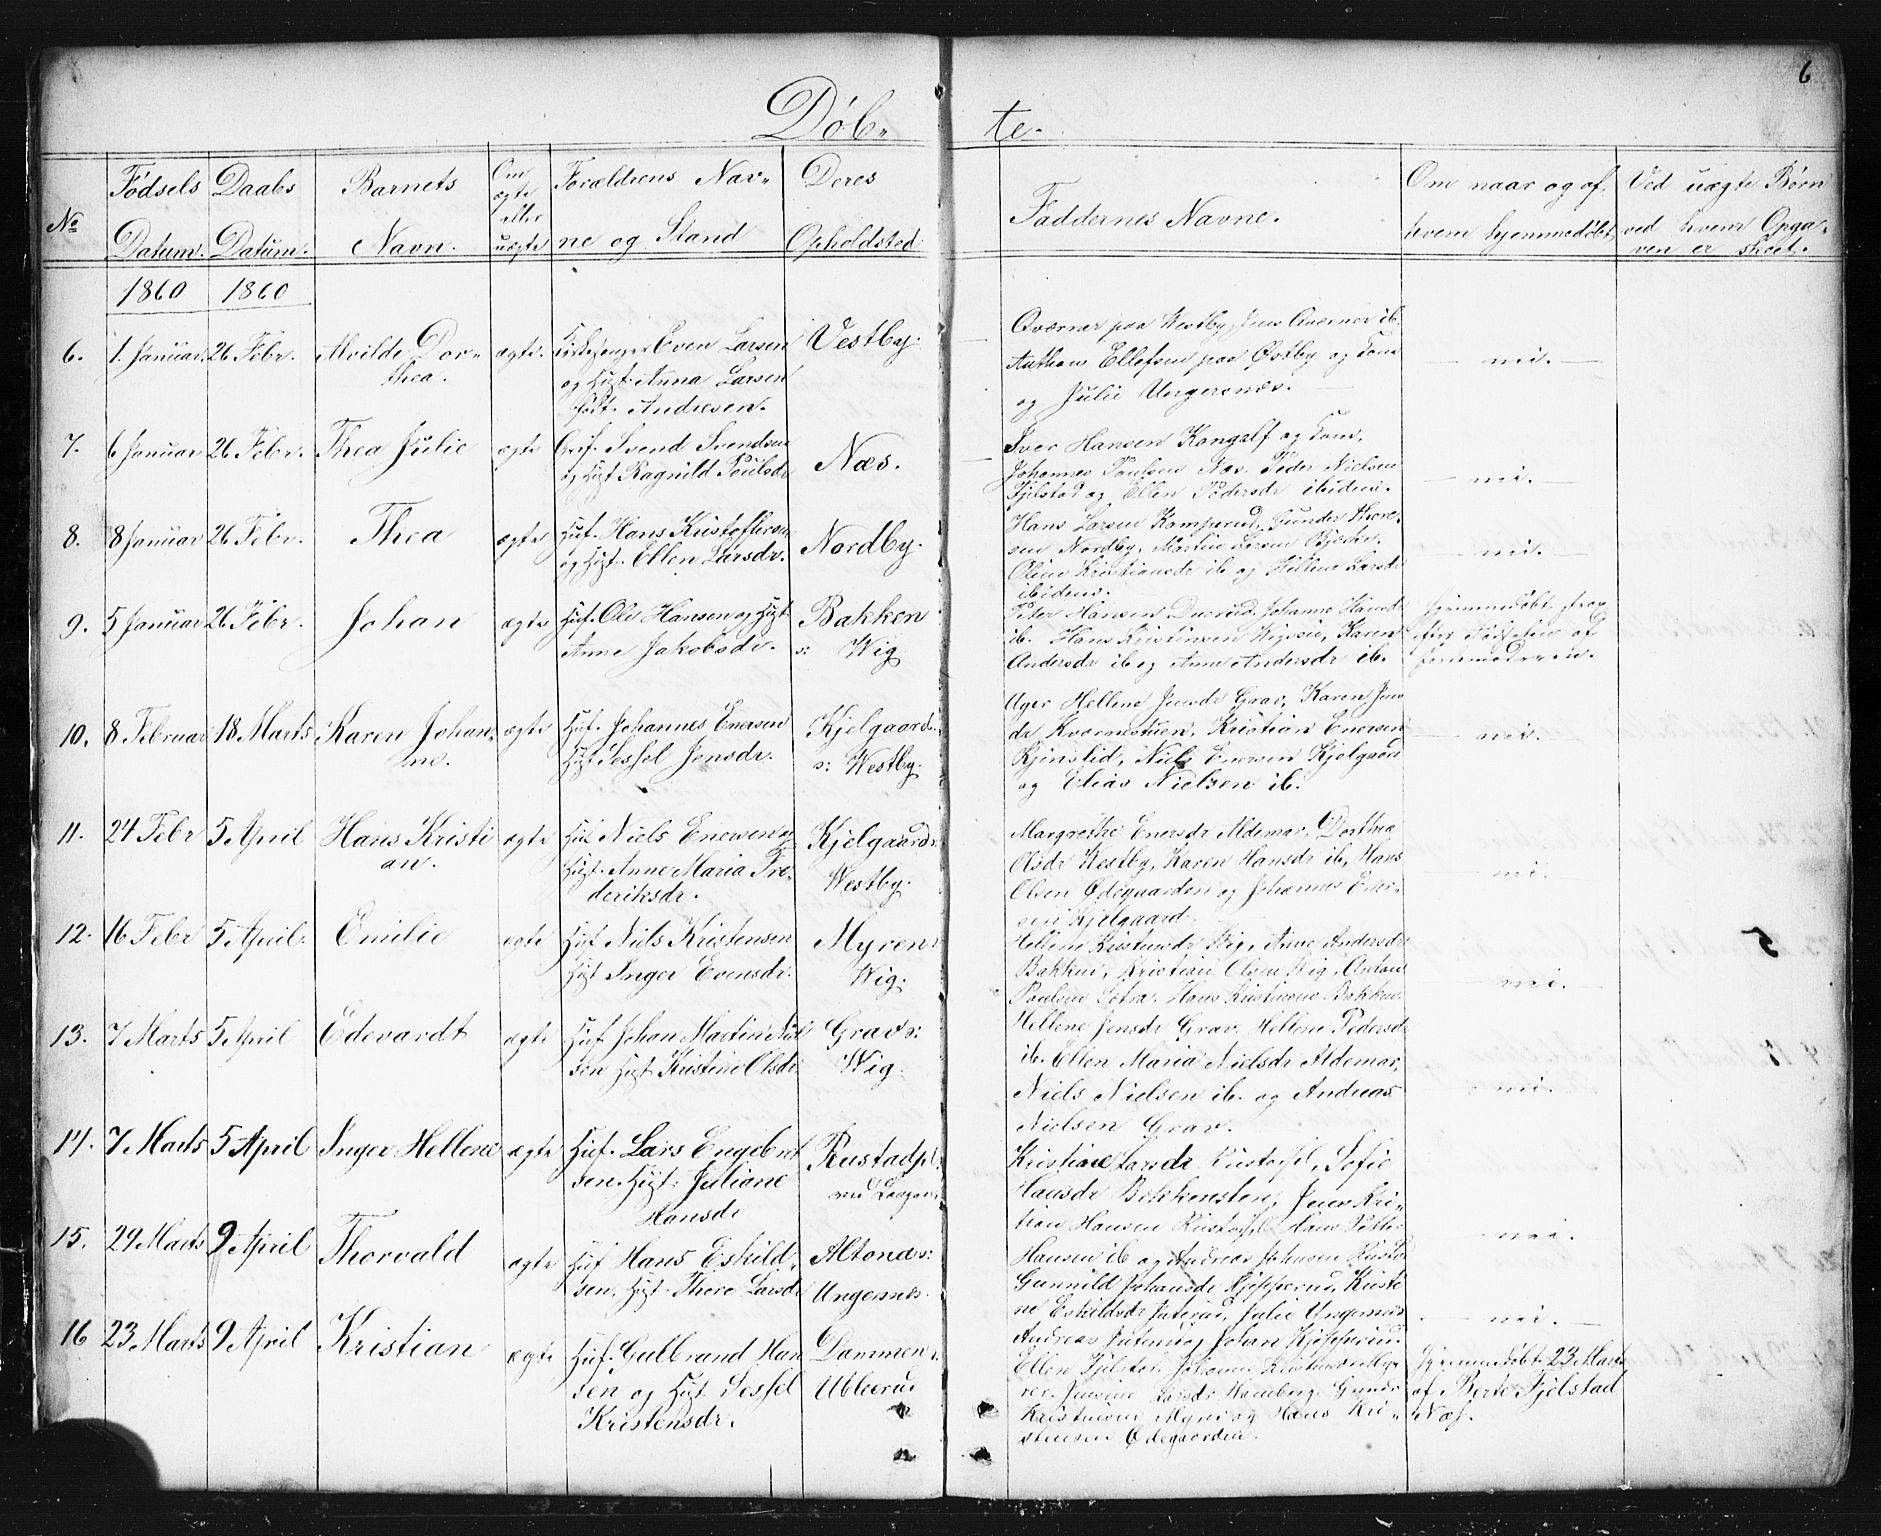 6
Døb-
te.
No
Fødsels Datum.
Daabs Datum.
Barnets Navn.
Om ægte eller uægte
Forældrens Nav-
ne og Stand
Deres Opholdsted
Faddernes Navne.
Om naar og af hvem hjemmedøbt
Ved uægte Børn ved hvem Opga-
ven er skeet.
1860 1860
6. 1. Januar 26 Febr. Alvilde Dor-
thea. ægte. Kirkesanger Even Larsen
og Hust. Anna Larsen
født Andresen.
Vestby.
Qværner paa Westby, Jens Qværner ib.
Anthon Ellefsen paa Østby og Kone
og Julie Ungersnæs.
nei.
7. 6 Januar 26 Febr. Thea Julie ægte Svend Svendsen
og Hust. Ragnild Poulsdr
Næs.
Iver Hansen Kongelf og Kone,
Johannes Poulsen Næs, Peder Nielsen
Fjelstad og Ellen Pedersdr ibidem.
nei.
8. 8 Januar 26 Febr. Thea ægte Huf. Hans Kristoffersen
og Hust. Ellen Larsdr.
Nordby.
Hans Larsen Kamperud, Gunder Thore-
sen Nordby, Martin Larsen Bjerke,
Oline Kristiansdr ib og Hellene Larsdr
ibidem.
nei.
9. 5 Januar 26 Febr. Johan ægte Huf. Ole Hansen og Hust
Anne Jakobsdr.
Bakken
s: Wig
Peter Hansen Johanne Hansdr
ib. Hans Kristensen Karen
Andersdr ib og Anne Andersdr ib.
Hjemmedøbt strax
efter Fødselen af
Jordemoderen.
10. 8 Februar 18 Marts Karen Johan-
ne. ægte Huf. Johannes Enersen
Hust Sessel Jensdr.
Kjelgaard
s: Westby.
Hellene Jensdr Grav, Karen Jens
dr Kværnstuen, Kristian Enersen
Niels Enersen Kjelgaard
og Elias Nielsen ib.
nei.
11. 24 Febr 5 April Hans Kristi
an. ægte Huf Niels Enersen og
Hust. Anne Maria Fre-
deriksdr.
Kjelgaard
Westby.
Margrethe Enersdr Aldemar, Dorthea
Olsdr Westby, Karen Hansdr ib, Hans
Olsen Ødegaarden og Johannes Ener-
sen Kjelgaard.
nei.
12. 16 Febr 5 April. Emilie ægte Huf Niels Kristensen
Hust Inger Evensdr.
Myren
Wig.
Hellene Kristensdr Wig, Anne Andersdr
Bakken, Kristian Olsen Wig, Anton
Poulsen Hans Kristensen Bakken.
nei.
5
13. 7 Marts 5 April Edevardt ægte Huf Johan Martin Niel
sen Hust Kristine Olsdr
Grav s:
Wig.
Hellene Jensdr Grav, Hellene Pedersdr
ib. Ellen Maria Nielsdr Aldemar,
Niels Nielsen ib. og Andreas
Nielsen Grav.
nei.
14. 7 Marts 5 April Inger Hellene ægte Huf. Lars Engebret
sen. Hust. Juliane
Hansdr
Rustadpl.
Kristine Larsdr Sofie
Hansdr Bakkensten, Jens Kri-
stian Hansen Hans Petter
Hansen ib og Andreas Johnsen
nei.
15. 29 Marts 9 April Thorvald ægte Huf Hans Eskild
sen, Hust. There Larsdr
Altona s:
Ungernes.
Gunnild Johansdr Kristi
ne Eskildsdr Julie Ungernes
Andreas og Johan
nei.
16 23 Marts 9 April Kristian ægte Huf. Gulbrand Han
sen og Hust Sessel
Kristensdr.
Dammen
Ubberu
Ellen Fjelstad, Johanne
Larsdr
Kristensen Myren og Hans Kri-
stensen Ødegaarden.
Hjemmedøbt 23 Marts
af Berte Fjelstad
Næs.